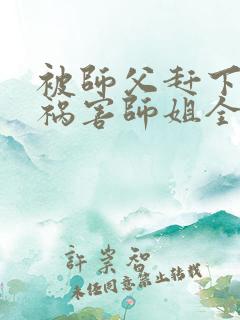 被師父赶下
祸害師姐全
許崇智
未经同意禁止转载